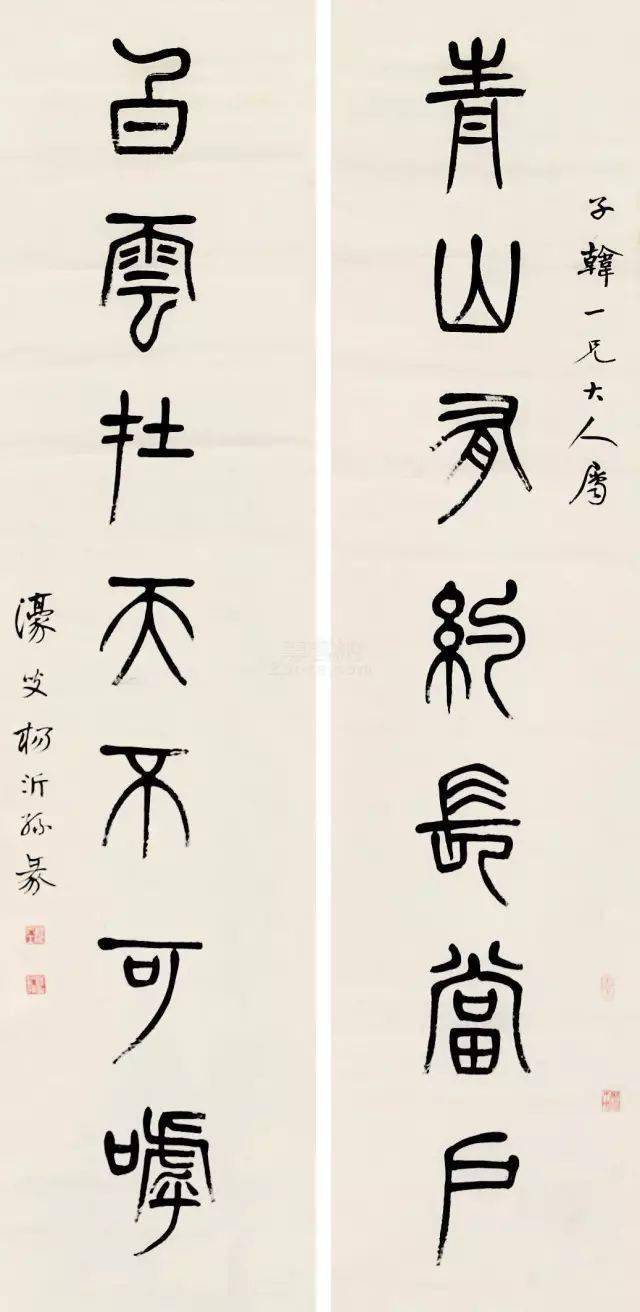 子韓一兄大人屬
青山有約長當戶
白雲扗天不可嘑
濠叟楊沂孫篆